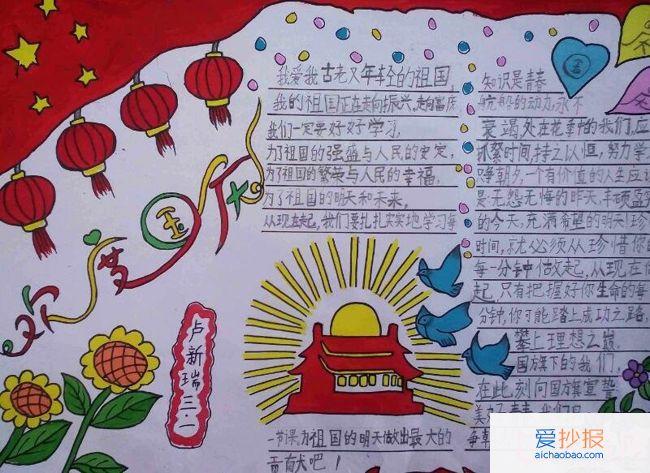 欢度国庆
我爱我古老又年轻的祖国,
我的祖国正在走向振兴,走向富庶
我们一定要好好学习,
为了祖国的强盛与人民的安定,
为了祖国的繁荣与人民的幸福,
为了祖国的明天和未来,
从现在起,我们要扎扎实实地学习每
一节课为祖国的明天做出最大的
贡献吧!
卢新瑞
三.一
国
知识是青春
的动力,永不
衰竭处在花季的我们,应
抓紧时间,持之以恒,努力学
争朝夕,一个有价值的人生应该
是无怨无悔的昨天,丰硕盈
的今天,充满希望的明天!珍
时间,就必须从珍惜你
每一分钟做起,从现在
起,只有把握好你生命的每
分钟,你可能踏上成功之路,
攀上理想之巅
国旗下的我们,
在此刻向国旗宣誓
爱抄报
aichaobao.com